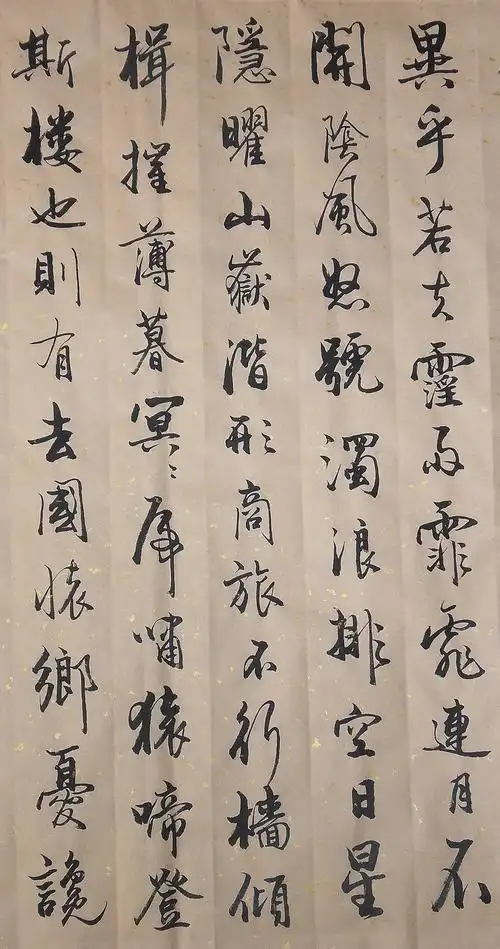 異乎若夫霪雨霏霏連月不
開陰風怒號濁浪排空日星
隱曜山嶽潛形商旅不行檣傾
楫摧薄暮冥〻虎嘯猿啼登
斯楼也則有去國懷鄉憂讒